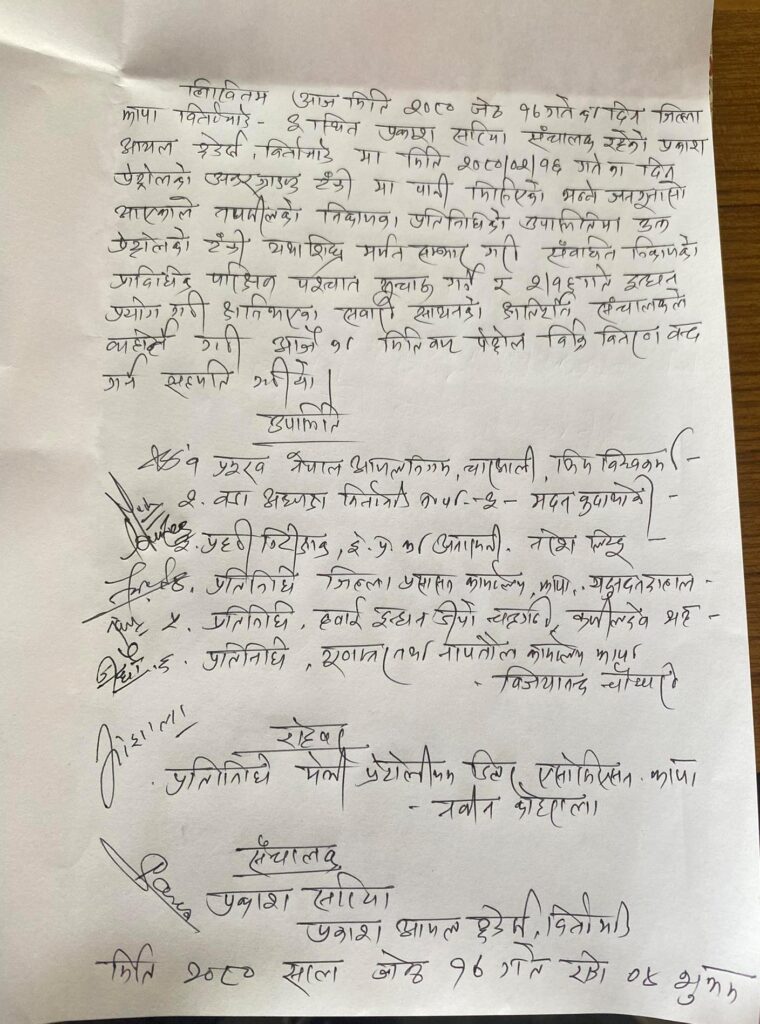 लिखितम आज मिति २०८० जेठ १६ गते का दिन जिल्ला
झापा बिर्तामोड - ३ स्थित प्रकाश सारिया संचालक रहेको प्रकाश
आयल ट्रेडर्स, बिर्तामोड मा मिति २०८०/०२/१६ गतेका दिन
पेट्रोलको अण्डरग्राउण्ड टंकी मा पानी मिसिएको भन्ने जनगुनासो
आएकोले तपशीलको निकायका प्रतिनिधिको उपस्थितिमा उक्त
पेट्रोलको टंकी यथाशिघ्र मर्मत सम्भार गरी संबन्धित निकायको
प्राविधिक परिक्षण पश्चात सुचारु गर्ने र २/१६ गते इन्धन
प्रयोग गरी क्षति भएका सवारी साधनको क्षतिपूर्ति संचालकले
व्यहोर्ने गरी आजै का मिति बाट पेट्रोल बिक्रि वितरण बन्द
गर्न सहमति गरीयो।
उपस्थिति
प्रमुख नेपाल आयल निगम, चारआली,
२. वडा अध्यक्ष बिर्तामोड झापा - ३ - मदन
३. प्रहरी निरीक्षक, इ.प्र.का अनारमनी. नरेश लिम्बू
प्रतिनिधि जिल्ला प्रशासन कार्यालय, झापा. दाहाल -
५. प्रतिनिधि, हवाई इन्धन डीपो चन्द्रगढी, कपीलदेव शाह -
६. प्रतिनिधि, गुणस्तर तथा नापतौल कार्यालय झापा
- विजयानन्द चौधरी
रोहबर
प्रतिनिधि मेची पेट्रोलियम डिलर एसोसिएसन झापा
- नवीन कोइराला
संचालक
प्रकाश सारिया
प्रकाश आयल ट्रेडर्स, बिर्तामोड
मिति २०८० साल जेठ १६ गते रोज ०४ शुभम